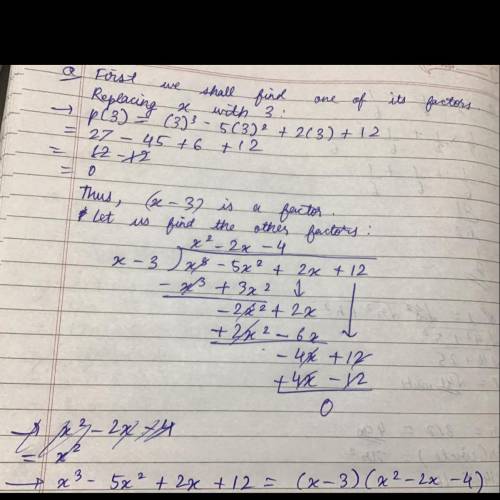 Q First we shall find one of its factors.
Replacing x with 3:
→ p(3) = (3)³ - 5(3)² + 2(3) + 12
= 27 - 45 + 6 + 12
= 12 - 12
= 0
Thus, (x - 3) is a factor.
Let us find the other factors:
x² - 2x - 4
x - 3 ) x³ - 5x² + 2x + 12
- x³ + 3x² ↓
- 2x² + 2x
+ 2x² - 6x ↓
- 4x + 12
+ 4x - 12
0
→ x² - 2x - 4
= x²
→ x³ - 5x² + 2x + 12 = (x-3) (x² - 2x - 4)